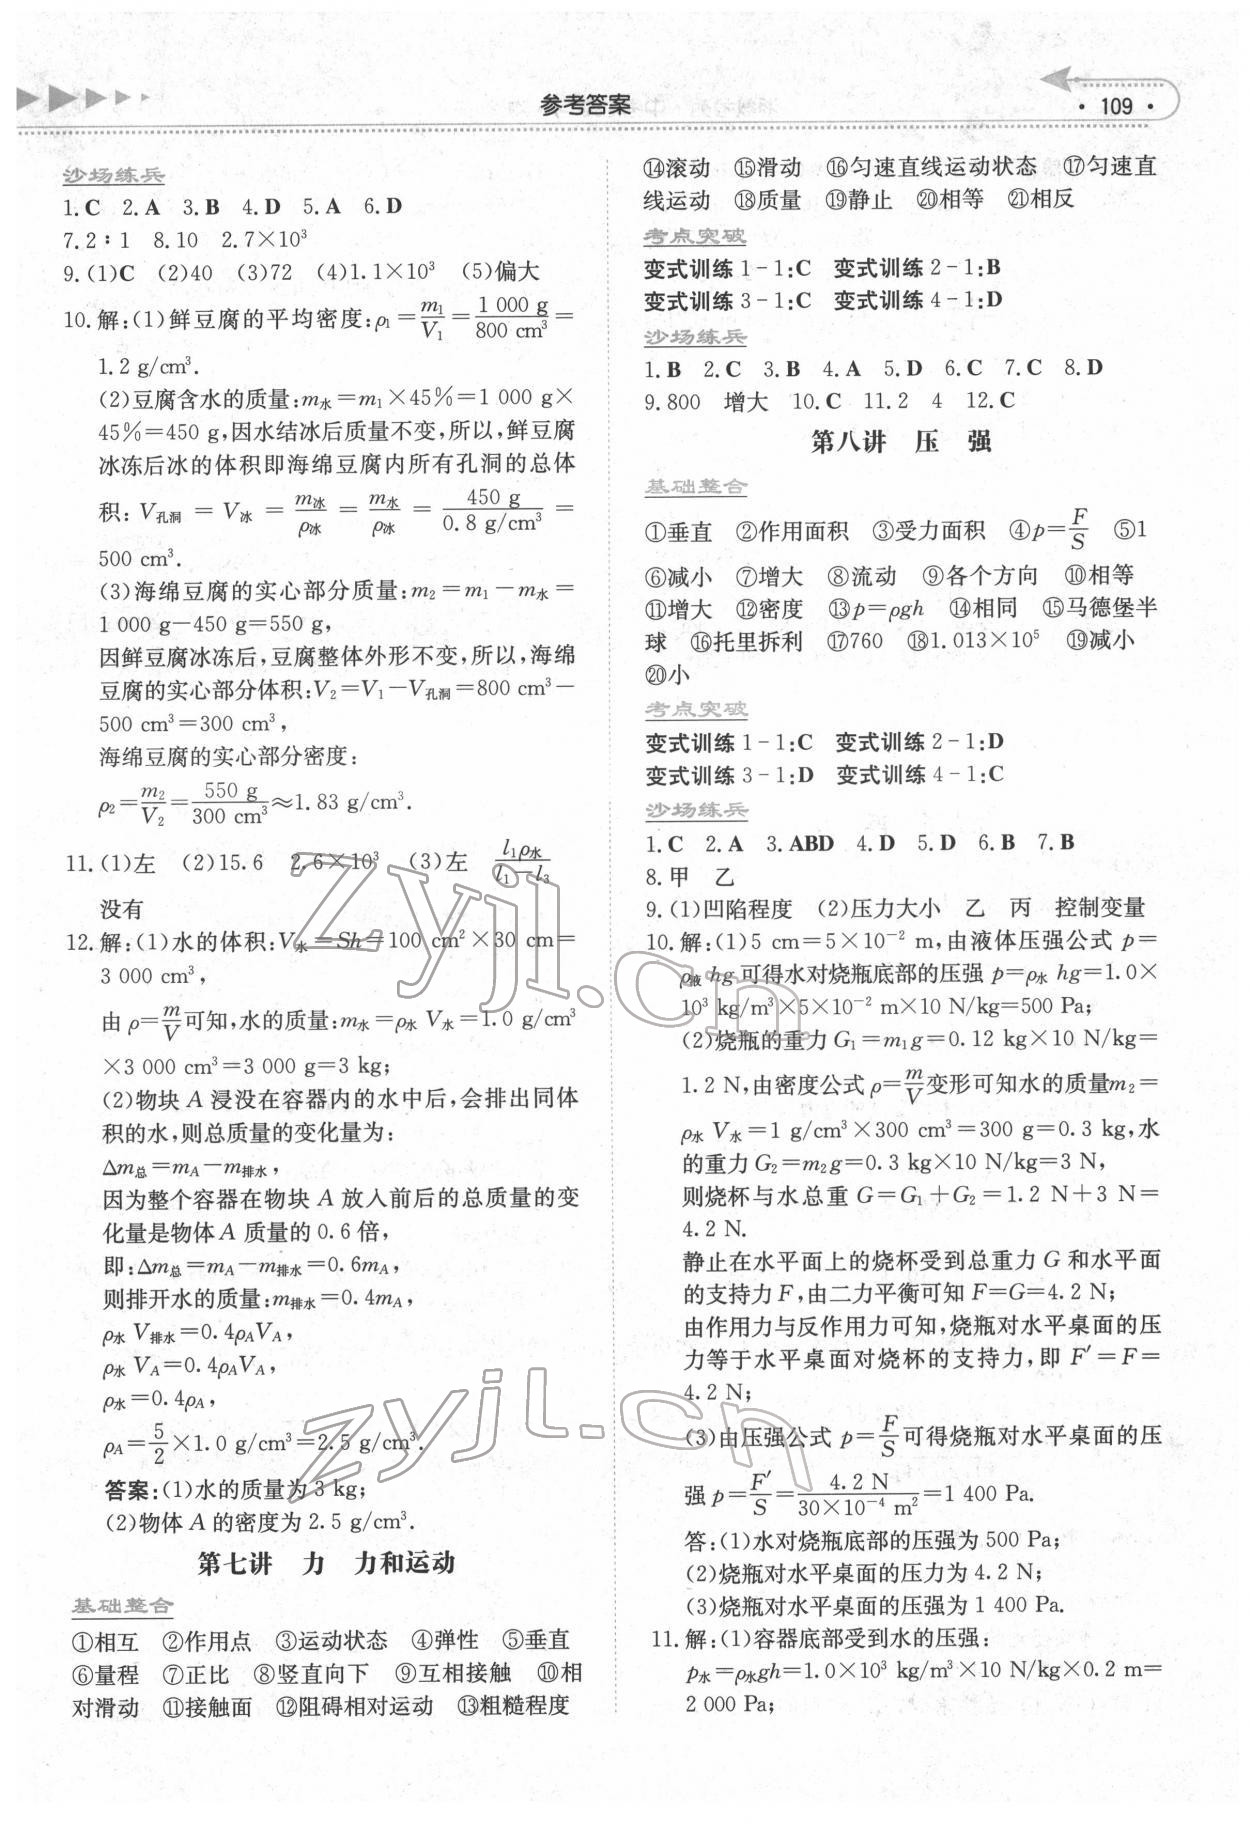 参考答案
· 109 ·
沙场练兵
1.C 2.A 3.B 4.D 5.A 6.D
7.2∶1 8.10 2.7×10³
9.(1)C (2)40 (3)72 (4)1.1×10³ (5)偏大
10.解:(1)鲜豆腐的平均密度:ρ₁=m₁/V₁=1 000 g/800 cm³=
1.2 g/cm³.
(2)豆腐含水的质量:m水=m₁×45%=1 000 g×
45%=450 g,因水结冰后质量不变,所以,鲜豆腐
冰冻后冰的体积即海绵豆腐内所有孔洞的总体
积:V孔洞=V冰=m冰/ρ冰=m水/ρ冰=450 g/0.8 g/cm³=
500 cm³.
(3)海绵豆腐的实心部分质量:m₂=m₁-m水=
1 000 g-450 g=550 g,
因鲜豆腐冰冻后,豆腐整体外形不变,所以,海绵
豆腐的实心部分体积:V₂=V₁-V孔洞=800 cm³-
500 cm³=300 cm³,
海绵豆腐的实心部分密度:
ρ₂=m₂/V₂=550 g/300 cm³≈1.83 g/cm³.
11.(1)左 (2)15.6 2.6×10³ (3)左 l₁ρ水/l₁-l₃
没有
12.解:(1)水的体积:V水=Sh=100 cm²×30 cm=
3 000 cm³,
由ρ=m/V可知,水的质量:m水=ρ水V水=1.0 g/cm³
×3 000 cm³=3 000 g=3 kg;
(2)物块A浸没在容器内的水中后,会排出同体
积的水,则总质量的变化量为:
Δm总=mA-m排水,
因为整个容器在物块A放入前后的总质量的变
化量是物体A质量的0.6倍,
即:Δm总=mA-m排水=0.6mA,
则排开水的质量:m排水=0.4mA,
ρ水V排水=0.4ρAVA,
ρ水VA=0.4ρAVA,
ρ水=0.4ρA,
ρA=5/2×1.0 g/cm³=2.5 g/cm³.
答案:(1)水的质量为3 kg;
(2)物体A的密度为2.5 g/cm³.
第七讲 力 力和运动
基础整合
①相互 ②作用点 ③运动状态 ④弹性 ⑤垂直
⑥量程 ⑦正比 ⑧竖直向下 ⑨互相接触 ⑩相
对滑动 ⑪接触面 ⑫阻碍相对运动 ⑬粗糙程度
⑭滚动 ⑮滑动 ⑯匀速直线运动状态 ⑰匀速直
线运动 ⑱质量 ⑲静止 ⑳相等 ㉑相反
考点突破
变式训练1-1:C 变式训练2-1:B
变式训练3-1:C 变式训练4-1:D
沙场练兵
1.B 2.C 3.B 4.A 5.D 6.C 7.C 8.D
9.800 增大 10.C 11.2 4 12.C
第八讲 压 强
基础整合
①垂直 ②作用面积 ③受力面积 ④p=F/S ⑤1
⑥减小 ⑦增大 ⑧流动 ⑨各个方向 ⑩相等
⑪增大 ⑫密度 ⑬p=ρgh ⑭相同 ⑮马德堡半
球 ⑯托里拆利 ⑰760 ⑱1.013×10⁵ ⑲减小
⑳小
考点突破
变式训练1-1:C 变式训练2-1:D
变式训练3-1:D 变式训练4-1:C
沙场练兵
1.C 2.A 3.ABD 4.D 5.D 6.B 7.B
8.甲 乙
9.(1)凹陷程度 (2)压力大小 乙 丙 控制变量
10.解:(1)5 cm=5×10⁻² m,由液体压强公式p=
ρ液hg可得水对烧瓶底部的压强p=ρ水hg=1.0×
10³ kg/m³×5×10⁻² m×10 N/kg=500 Pa;
(2)烧瓶的重力G₁=m₁g=0.12 kg×10 N/kg=
1.2 N,由密度公式ρ=m/V变形可知水的质量m₂=
ρ水V水=1 g/cm³×300 cm³=300 g=0.3 kg,水
的重力G₂=m₂g=0.3 kg×10 N/kg=3 N,
则烧杯与水总重G=G₁+G₂=1.2 N+3 N=
4.2 N.
静止在水平面上的烧杯受到总重力G和水平面
的支持力F,由二力平衡可知F=G=4.2 N;
由作用力与反作用力可知,烧瓶对水平桌面的压
力等于水平桌面对烧杯的支持力,即F′=F=
4.2 N;
(3)由压强公式p=F/S可得烧瓶对水平桌面的压
强p=F′/S=4.2 N/30×10⁻⁴ m²=1 400 Pa.
答:(1)水对烧瓶底部的压强为500 Pa;
(2)烧瓶对水平桌面的压力为4.2 N;
(3)烧瓶对水平桌面的压强为1 400 Pa.
11.解:(1)容器底部受到水的压强:
p水=ρ水gh=1.0×10³ kg/m³×10 N/kg×0.2 m=
2 000 Pa;
zyjl.cn
zyjl.cn